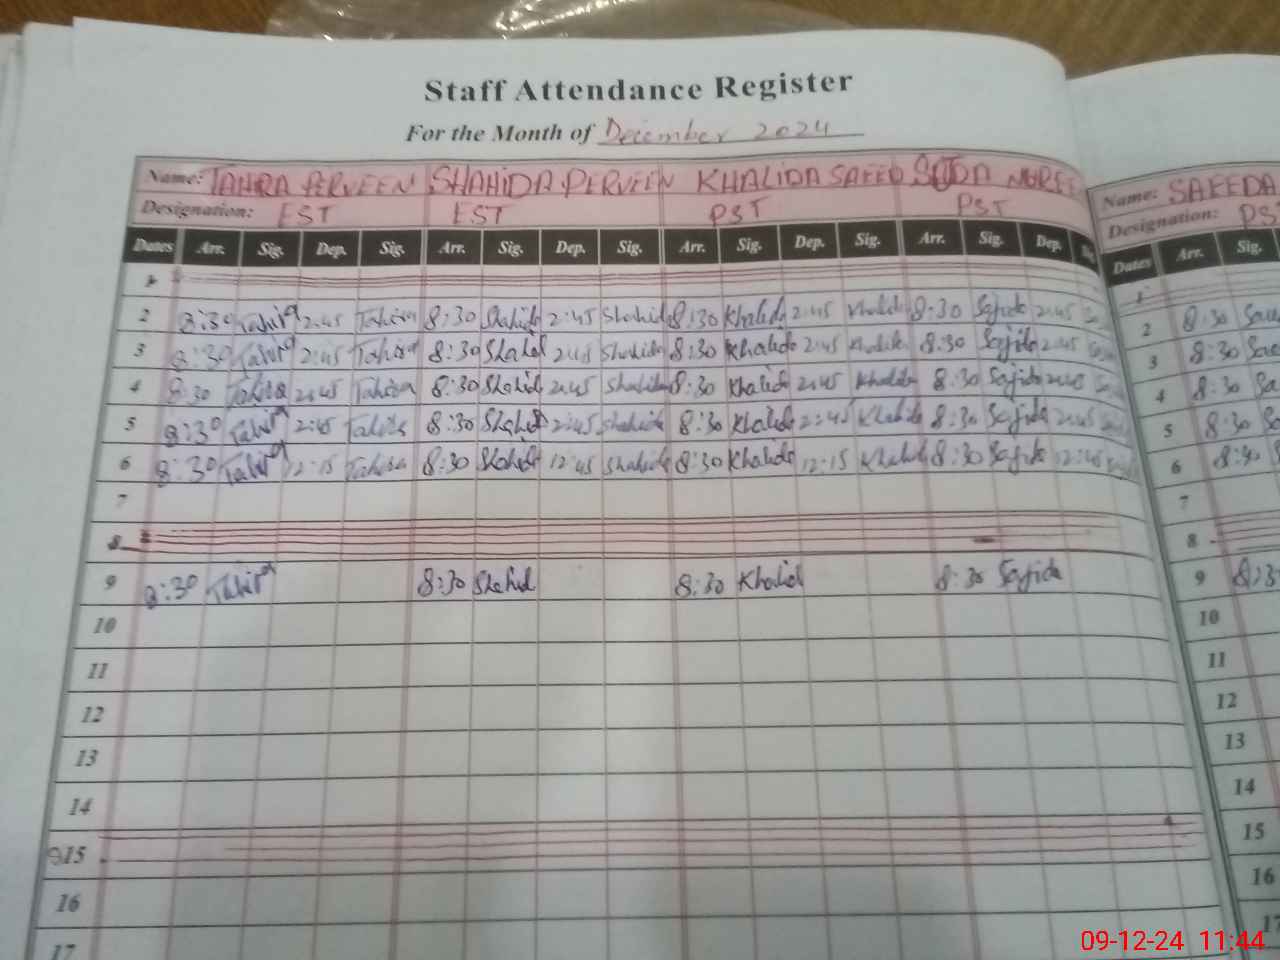 Staff Attendance Register
For the Month of December 2024
Name: TAHIRA PERVEEN SHAHIDA PERVEEN KHALIDA SAEED
Name: SAEEDA
Designation: EST EST PST PST
Designation: PS
Dates Arr. Sig. Dep. Sig. Arr. Sig. Dep. Sig. Arr. Sig. Dep. Sig. Arr. Sig. Dep.
Dates Arr. Sig.
1
2 8:30 Tahira 2:45 Tahira 8:30 Shahida 2:45 Shahida 8:30 Khalida 2:45 Khalida 8:30 Sajida 2:45
2 8:30
3 8:30 Tahira 2:45 Tahira 8:30 Shahid 2:45 Shahida 8:30 Khalida 2:45 Khalida 8:30 Sajida 2:45
3 8:30
4 8:30 Tahira 2:45 Tahira 8:30 Shahid 2:45 Shahida 8:30 Khalida 2:45 Khalida 8:30 Sajida 2:45
4 8:30
5 8:30 Tahira 2:45 Tahira 8:30 Shahid 2:45 Shahida 8:30 Khalida 2:45 Khalida 8:30 Sajida 2:45
5 8:30
6 8:30 Tahira 12:15 Tahira 8:30 Shahid 12:45 Shahida 8:30 Khalida 12:15 Khalida 8:30 Sajida 12:45
6 8:30
7
7
8
8
9 8:30 Tahira 8:30 Shahid 8:30 Khalid 8:30 Sajida
9 8:3
10
10
11
11
12
12
13
13
14
14
15
15
16
16
17
17
09-12-24 11:44